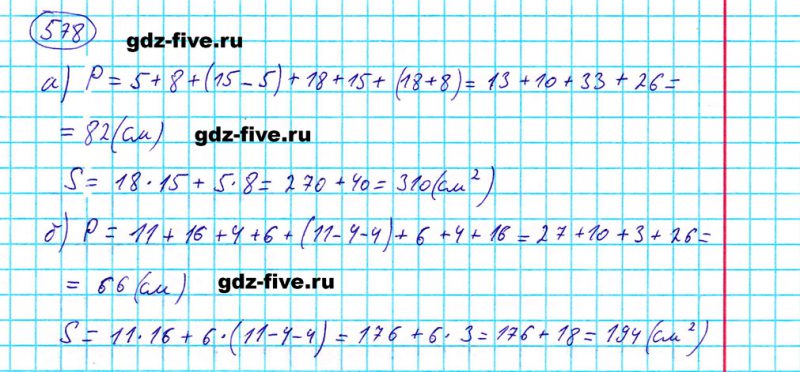 578
gdz-five.ru
а) P = 5 + 8 + (15 - 5) + 18 + 15 + (18 + 8) = 13 + 10 + 33 + 26 =
= 82 (см)
gdz-five.ru
S = 18 · 15 + 5 · 8 = 270 + 40 = 310 (см²)
б) P = 11 + 16 + 4 + 6 + (11 - 4 - 4) + 6 + 4 + 16 = 27 + 10 + 3 + 26 =
= 66 (см)
gdz-five.ru
S = 11 · 16 + 6 · (11 - 4 - 4) = 176 + 6 · 3 = 176 + 18 = 194 (см²)